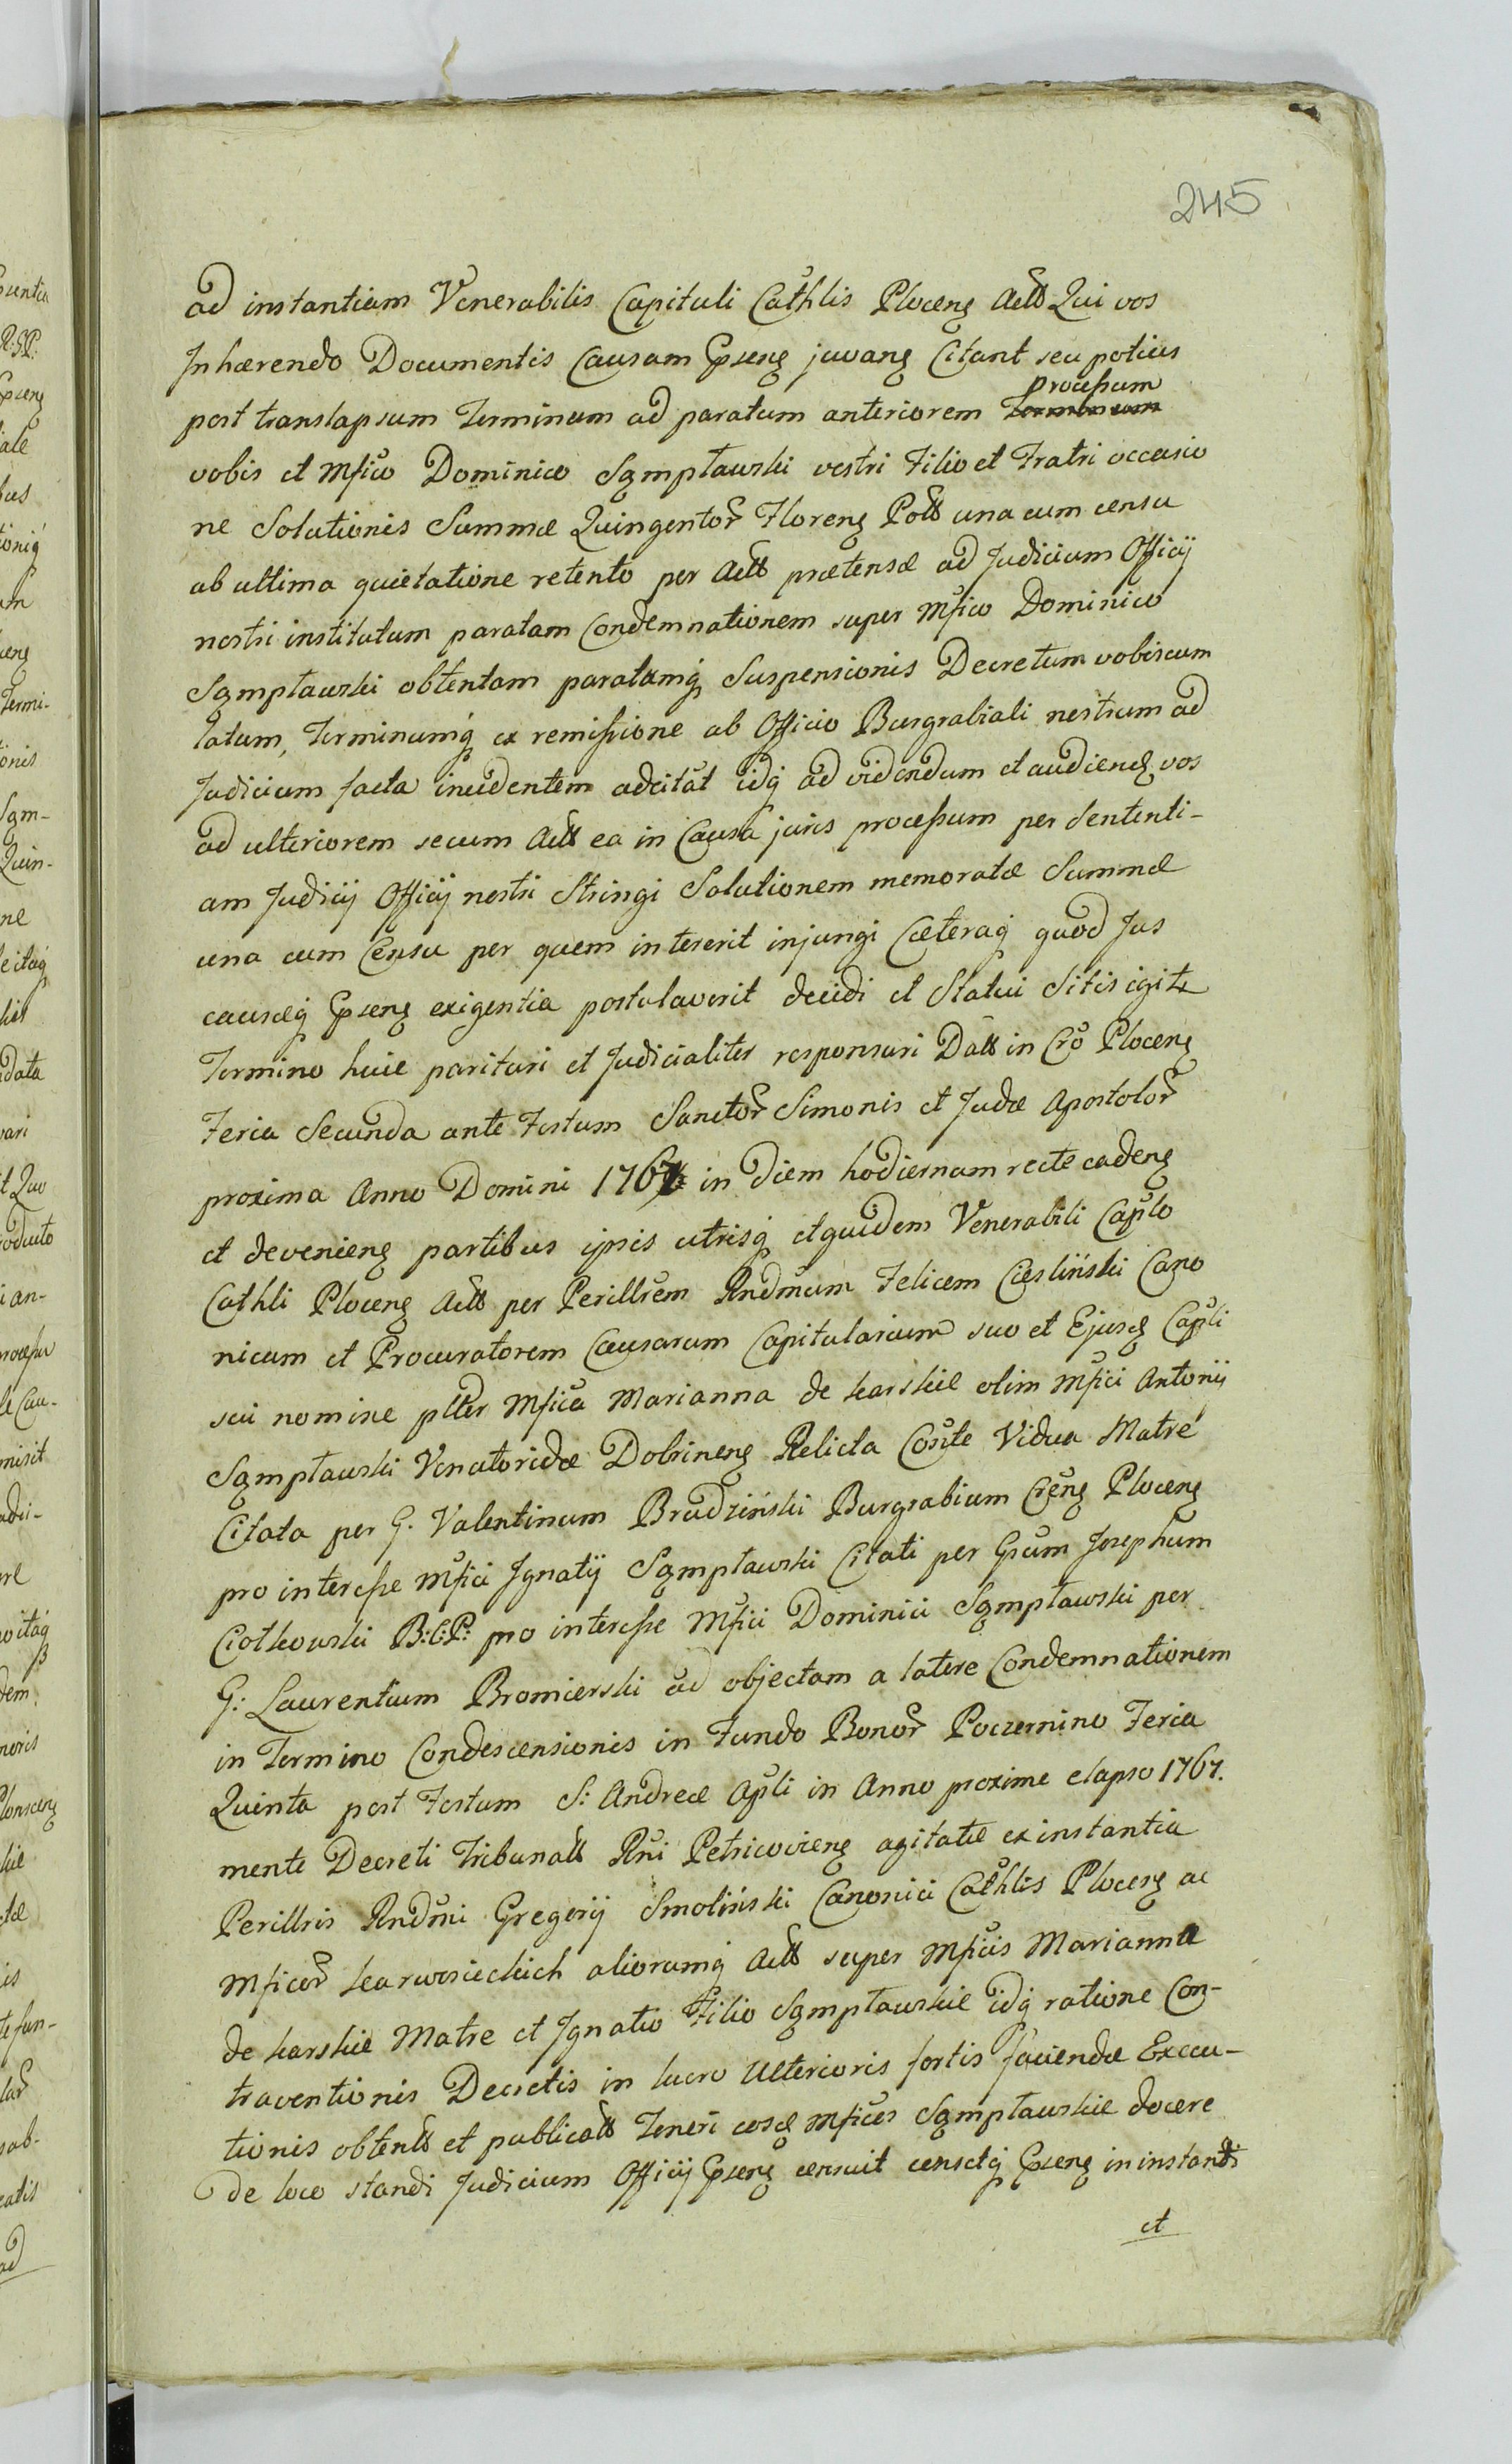 245
ad instantiam Venerabilis Capituli Cathlis Plocen̄ Act̄t Qui vos
Inhærendo Documentis Causam P̄sen̄ juvan̄ Citant seu potius
processum
post translapsum Terminum ad paratum anteriorem Terminum
vobis et Mfico Dominico Sąmpławski vestri Filio et Fratri occasio
ne Solutionis Summæ Quingentor̄ Floren̄ Pol̄l una cum censu
ab ultima quietatione retento per Act̄t prætensæ ad Judicium Officij
nostri institutum paratam Condemnationem super Mfico Dominico
Sąmpławski obtentam paratumq̨ Suspensionis Decretum vobiscum
latum, Terminumq̨ ex remissione ab Officio Burgrabiali nostrum ad
Judicium facta incidentem adcitāt idq̨ ad videndum et audiend̨ vos
ad ulteriorem secum Act̄t ea in Causa juris processum per Sententi-
am Judicij Officij nostri Stringi Solutionem memoratæ Summæ
una cum Censu per quem intererit injungi Cæteraq̨ quod Jus
causæq̨ P̄sen̄ exigentia postulaverit decidi et Statui Sitis igitr
Termino huic parituri et Judicialiter responsuri Dat̄t in Cr̄o Plocen̄
Feria Secunda ante Festum Sanctor̄ Simonis et Judæ Apostolor̄
proxima Anno Domini 1767 in diem hodiernam recte caden̄
et devenien̄ partibus ipsis utrisq̨ et quidem Venerabili Cap̄lo
Cathli Plocen̄ Act̄t per Perillrem Rndmum Felicem Cieśliński Cano
nicum et Procuratorem Causarum Capitularium suo et Ejusd̨ Cap̄li
sui nomine pltēr Mfica Marianna de Karskie olim Mfici Antonij
Sąmpławski Venatoridæ Dobrinen̄ Relicta Cōste Vidua Matre
Citata per G. Valentinum Brudziński Burgrabium Cr̄en̄ Plocen̄
pro interesse Mfici Ignatij Sąmpławski Citati per Gsum Josephum
Ciołkowski B: C: P: pro interesse Mfici Dominici Sąmpławski per
G: Laurentium Bromierski ad objectam a latere Condemnationem
in Termino Condescensionis in Fundo Bonor̄ Poczernino Feria
Quinta post Festum S: Andreæ Ap̄li in Anno proxime elapso 1767.
mente Decreti Tribunal̄l Rni Petricovien̄ agitatæ ex instantia
Perillris Rndmi Gregorij Smoliński Canonici Cathlis Plocen̄ ac
Mficor̄ Karwosieckich aliorumq̨ Act̄t super Mficis Marianna
de Karskie Matre et Ignatio Filio Sąmpławskie idq̨ ratione Con-
traventionis Decretis in lucro Ulterioris fortis faciendæ Execu-
tionis obtent̄t et publicat̄t Teneri eosd̨ Mficos Sąmpławskie docere
de loco standi Judicium Officij P̄sen̄ censuit censetq̨ P̄sen̄ in instanti
et